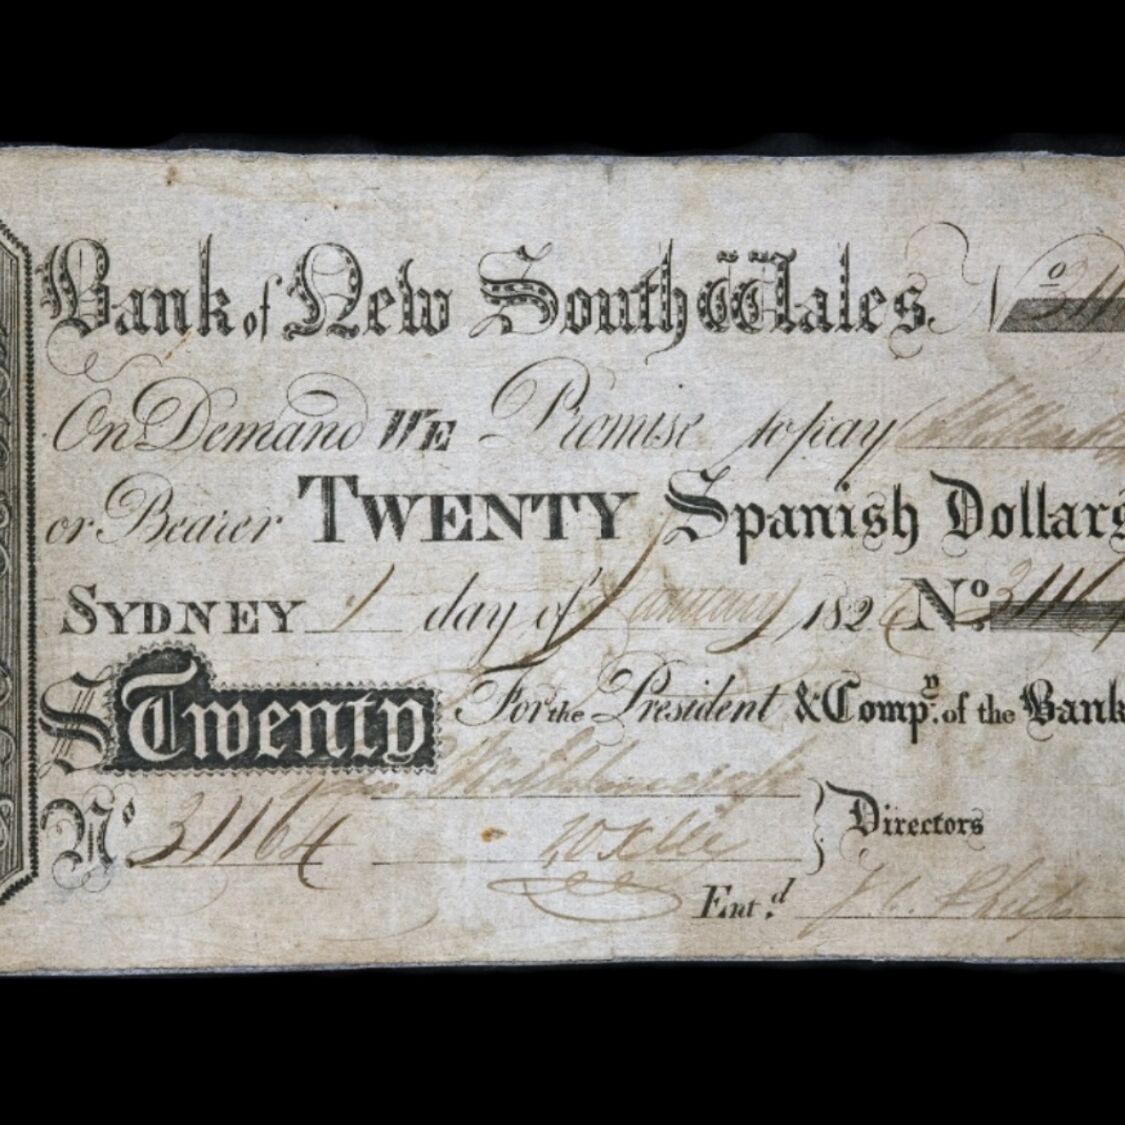 Bank of New South Wales. Nº 311
On Demand WE Promise to pay
or Bearer TWENTY Spanish Dollars
SYDNEY 1 day of January 1826 Nº. 3116
$ Twenty For the President & Compⁿʸ. of the Bank
Nº 31164 Directors
Ent.ᵈ